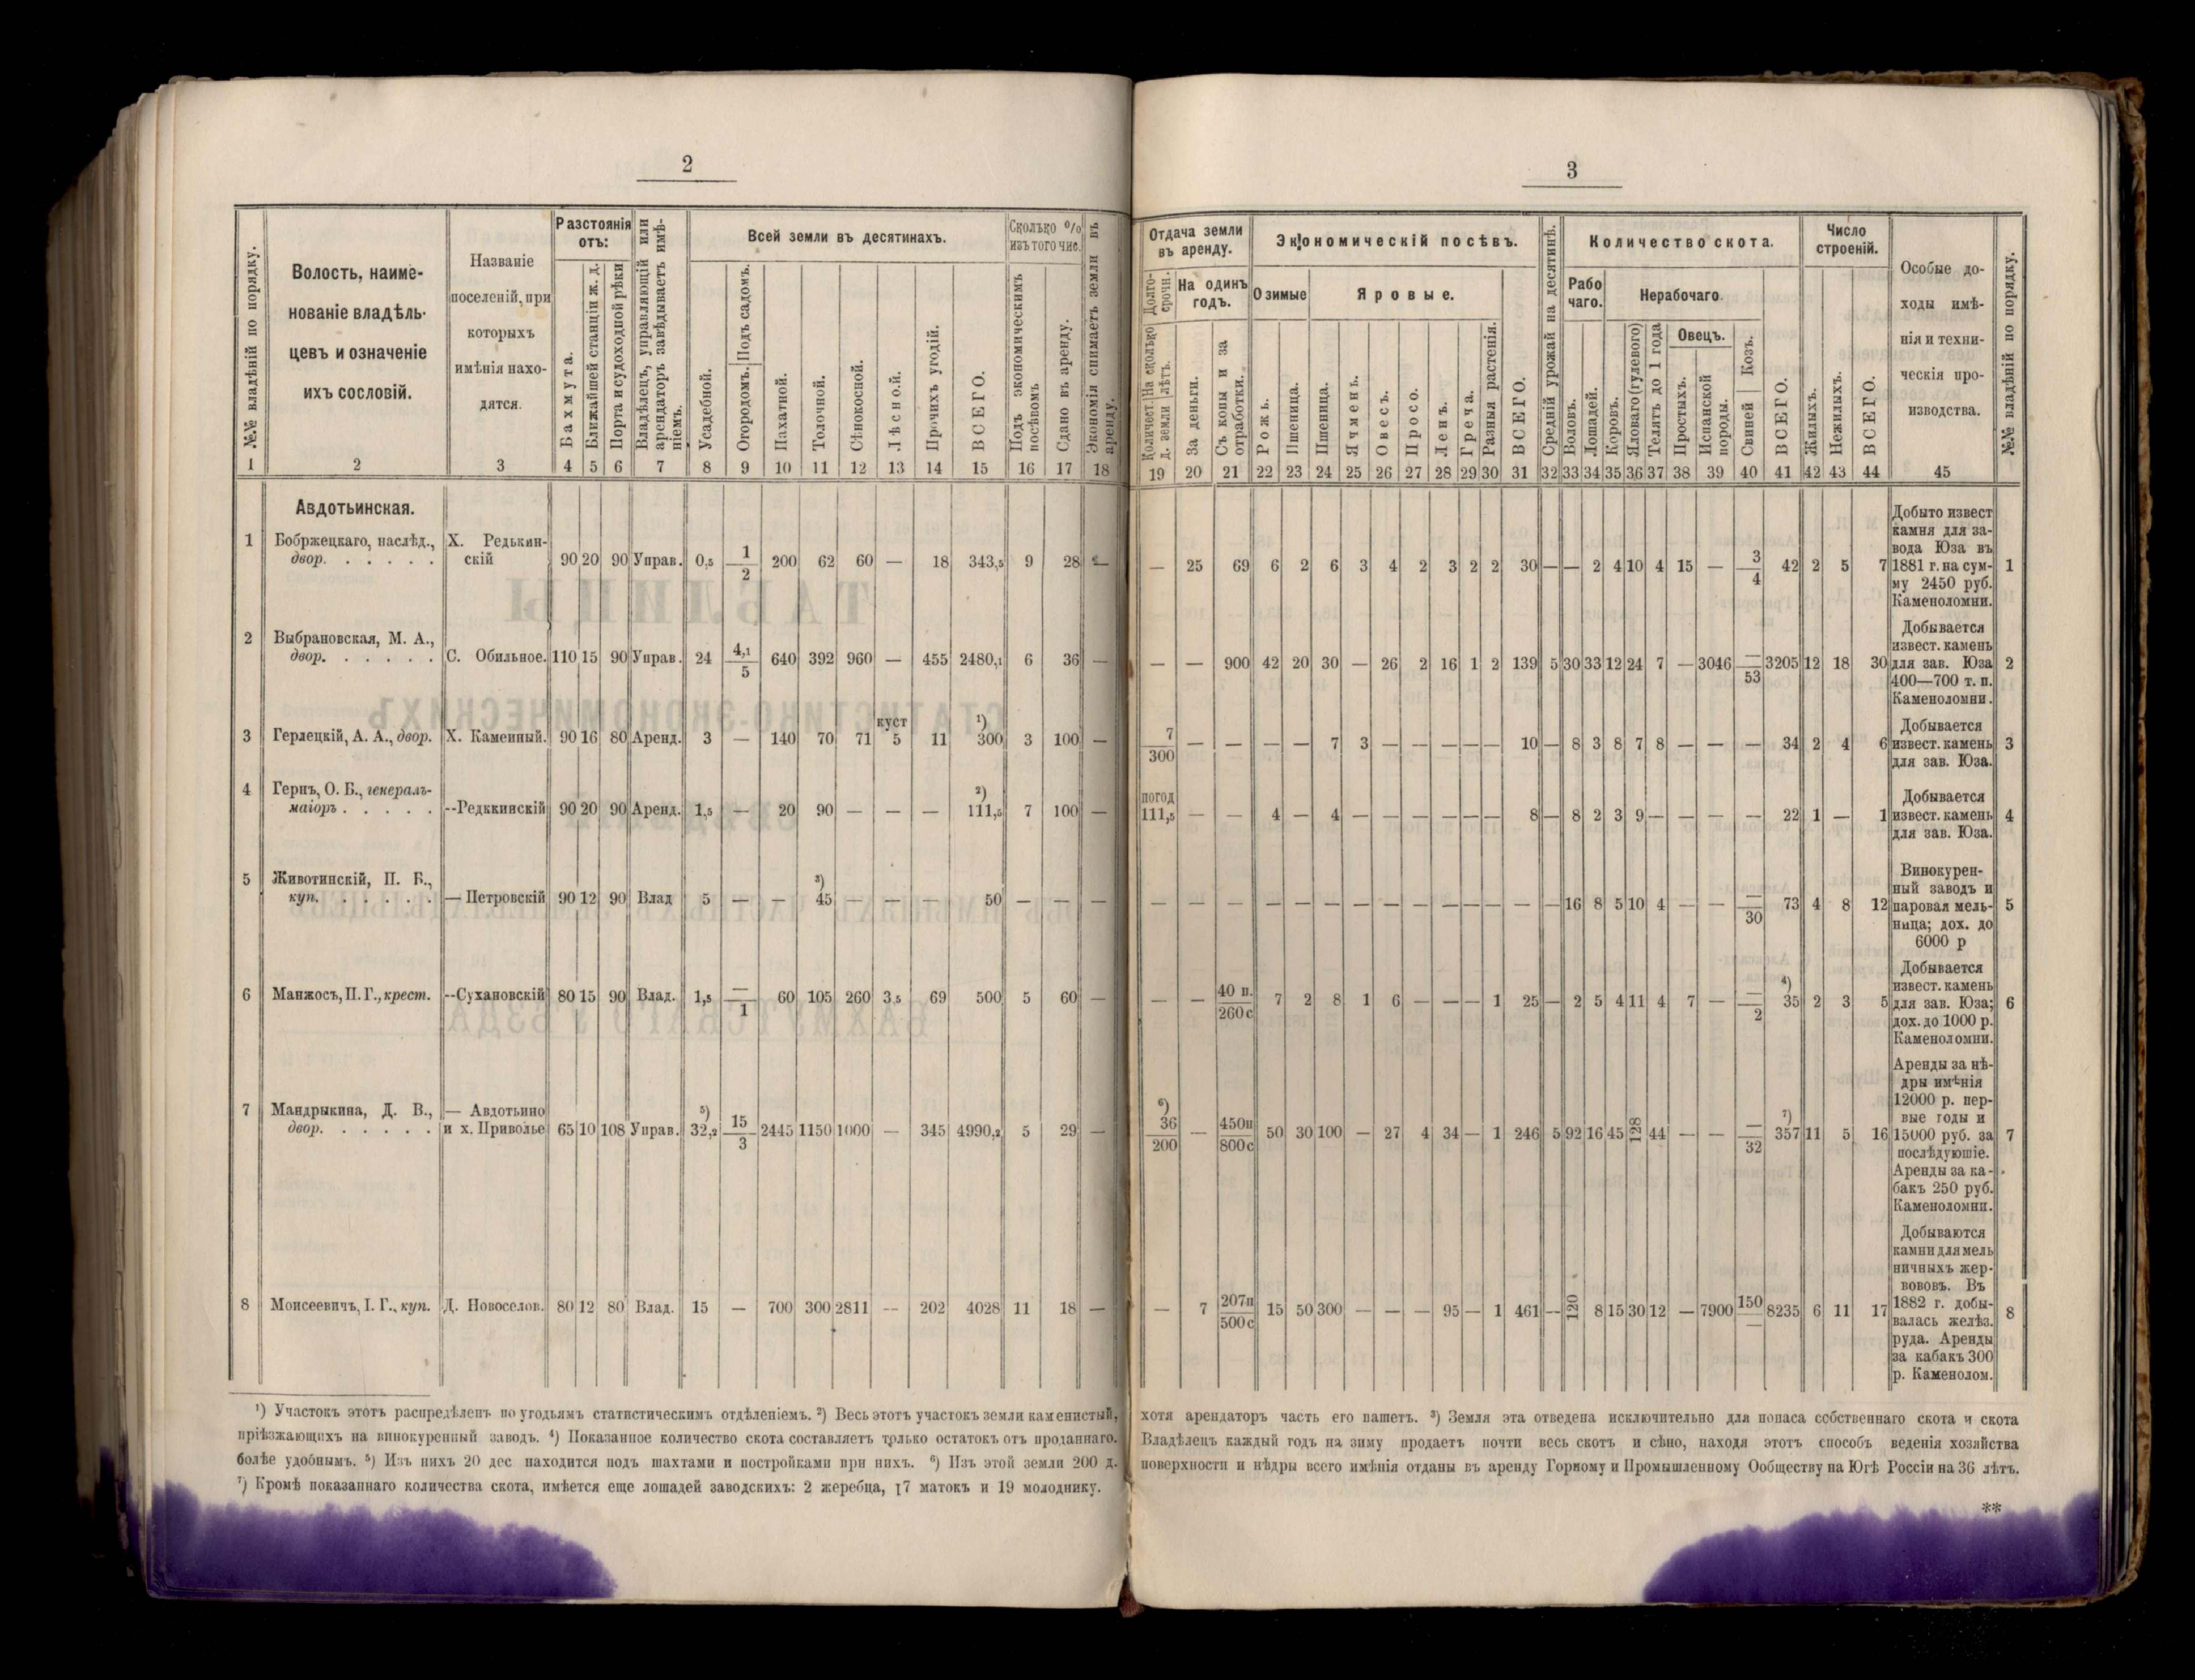 2
№№ владѣній по порядку.
Волость, наиме-
нованіе владѣль-
цевъ и означеніе
ихъ сословій.
Названіе
поселеній, при
которыхъ
имѣнія нахо-
дятся.
Разстоянія
отъ:
Бахмута.
Ближайшей станціи ж. д.
Порта и судоходной рѣки
Владѣлецъ, управляющій или
арендаторъ завѣдываетъ имѣ-
ніемъ.
Всей земли въ десятинахъ.
Усадебной.
Огородомъ. Подъ садомъ.
Пахатной.
Толочной.
Сѣнокосной.
Лѣсной.
Прочихъ угодій.
ВСЕГО.
Сколько %
изъ того чис.
Подъ экономическимъ
посѣвомъ
Сдано въ аренду.
Экономія снимаетъ земли въ
аренду.
1 2 3 4 5 6 7 8 9 10 11 12 13 14 15 16 17 18
Авдотьинская.
1 Бобржецкаго, наслѣд., Х. Редькин-
двор. . . . . . скій 90 20 90 Управ. 0,5 1/2 200 62 60 — 18 343,5 9 28 —
2 Выбрановская, М. А.,
двор. . . . . . С. Обильное. 110 15 90 Управ. 24 4,1/5 640 392 960 — 455 2480,1 6 36 —
3 Герлецкій, А. А., двор. Х. Каменный. 90 16 80 Аренд. 3 — 140 70 71 куст 5 11 ¹) 300 3 100 —
4 Гернъ, О. Б., генералъ-
маіоръ . . . . . --Редккинскій 90 20 90 Аренд. 1,5 — 20 90 — — — ²) 111,5 7 100 —
5 Животинскій, П. Б.,
куп. . . . . . — Петровскій 90 12 90 Влад 5 — — ³) 45 — — — 50 — — —
6 Манжосъ, П. Г., крест. --Сухановскій 80 15 90 Влад. 1,5 —/1 60 105 260 3,5 69 500 5 60 —
7 Мандрыкина, Д. В., — Авдотьино
двор. . . . . . и х. Приволье 65 10 108 Управ. ⁵) 32,2 15/3 2445 1150 1000 — 345 4990,2 5 29 —
8 Моисеевичъ, І. Г., куп. Д. Новоселов. 80 12 80 Влад. 15 — 700 300 2811 -- 202 4028 11 18 —
¹) Участокъ этотъ распредѣленъ по угодьямъ статистическимъ отдѣленіемъ. ²) Весь этотъ участокъ земли каменистый,
пріѣзжающихъ на винокуренный заводъ. ⁴) Показанное количество скота составляетъ только остатокъ отъ проданнаго.
болѣе удобнымъ. ⁵) Изъ нихъ 20 дес находится подъ шахтами и постройками при нихъ. ⁶) Изъ этой земли 200 д.
⁷) Кромѣ показаннаго количества скота, имѣется еще лошадей заводскихъ: 2 жеребца, 17 матокъ и 19 молоднику.
3
Отдача земли
въ аренду.
Долго-
срочн.
Количест. На сколько
д. земли лѣтъ.
На одинъ
годъ.
За деньги.
Съ копы и за
отработки.
Экономическій посѣвъ.
Озимые
Яровые.
Рожь.
Пшеница.
Пшеница.
Ячмень.
Овесъ.
Просо.
Ленъ.
Греча.
Разныя растенія.
ВСЕГО.
Средній урожай на десятинѣ.
Количество скота.
Рабо
чаго.
Нерабочаго.
Воловъ.
Лошадей.
Коровъ.
Яловаго (гулевого)
Телятъ до 1 года
Овецъ.
Простыхъ.
Испанской
породы.
Свиней Козъ.
ВСЕГО.
Число
строеній.
Жилыхъ.
Нежилыхъ.
ВСЕГО.
Особые до-
ходы имѣ-
нія и техни-
ческія про-
изводства.
№№ владѣній по порядку.
19 20 21 22 23 24 25 26 27 28 29 30 31 32 33 34 35 36 37 38 39 40 41 42 43 44 45
— 25 69 6 2 6 3 4 2 3 2 2 30 — — 2 4 10 4 15 — 3/4 42 2 5 7 1
Добыто извест
камня для за-
вода Юза въ
1881 г. на сум-
му 2450 руб.
Каменоломни.
— — 900 42 20 30 — 26 2 16 1 2 139 5 30 33 12 24 7 — 3046 —/53 3205 12 18 30 2
Добывается
извест. камень
для зав. Юза
400—700 т. п.
Каменоломни.
7/300 — — — — 7 3 — — — — — 10 — 8 3 8 7 8 — — — 34 2 4 6 3
Добывается
извест. камень
для зав. Юза.
погод
111,5 — — 4 — 4 — — — — — — 8 — 8 2 3 9 — — — — 22 1 — 1 4
Добывается
извест. камень
для зав. Юза.
— — — — — — — — — — — — — — 16 8 5 10 4 — — —/30 73 4 8 12 5
Винокурен-
ный заводъ и
паровая мель-
ница; дох. до
6000 р
— — 40 п./260 с 7 2 8 1 6 — — — 1 25 — 2 5 4 11 4 7 — —/2 ⁴) 35 2 3 5 6
Добывается
извест. камень
для зав. Юза;
дох. до 1000 р.
Каменоломни.
⁶) 36/200 — 450п/800с 50 30 100 — 27 4 34 — 1 246 5 92 16 45 128 44 — — —/32 ⁷) 357 11 5 16 7
Аренды за нѣ-
дры имѣнія
12000 р. пер-
вые годы и
15000 руб. за
послѣдующіе.
Аренды за ка-
бакъ 250 руб.
Каменоломни.
— 7 207п/500с 15 50 300 — — — 95 — 1 461 — 120 8 15 30 12 — 7900 150/— 8235 6 11 17 8
Добываются
камни для мель
ничныхъ жер-
вововъ. Въ
1882 г. добы-
валась желѣз.
руда. Аренды
за кабакъ 300
р. Каменолом.
хотя арендаторъ часть его пашетъ. ³) Земля эта отведена исключительно для попаса собственнаго скота и скота
Владѣлецъ каждый годъ на зиму продаетъ почти весь скотъ и сѣно, находя этотъ способъ веденія хозяйства
поверхности и нѣдры всего имѣнія отданы въ аренду Горному и Промышленному Ообществу на Югѣ Россіи на 36 лѣтъ.
**